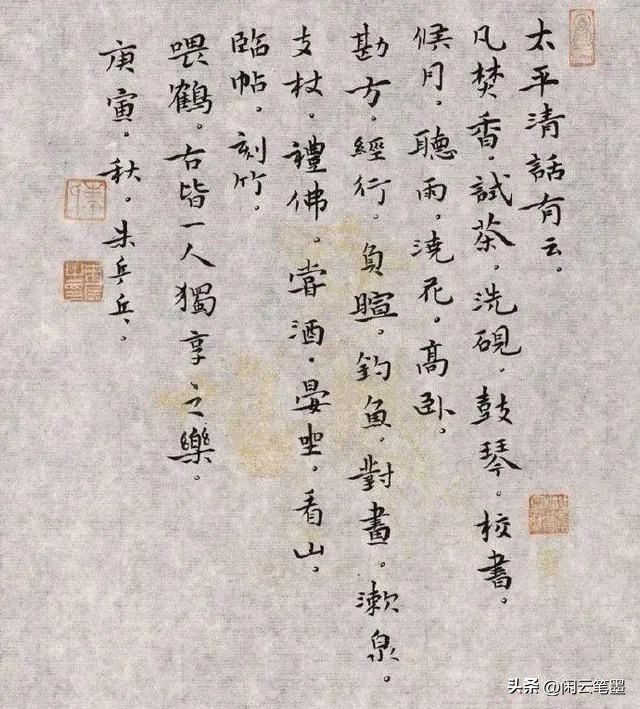 太平清話有云。
凡焚香。試茶。洗硯。鼓琴。校書。
候月。聽雨。澆花。高卧。
勘方。經行。負暄。釣魚。對畫。漱泉。
支杖。禮佛。嘗酒。晏坐。看山。
臨帖。刻竹。
喂鶴。古皆一人獨享之樂。
庚寅。秋。朱乒乓。
头条 @闲云笔墨